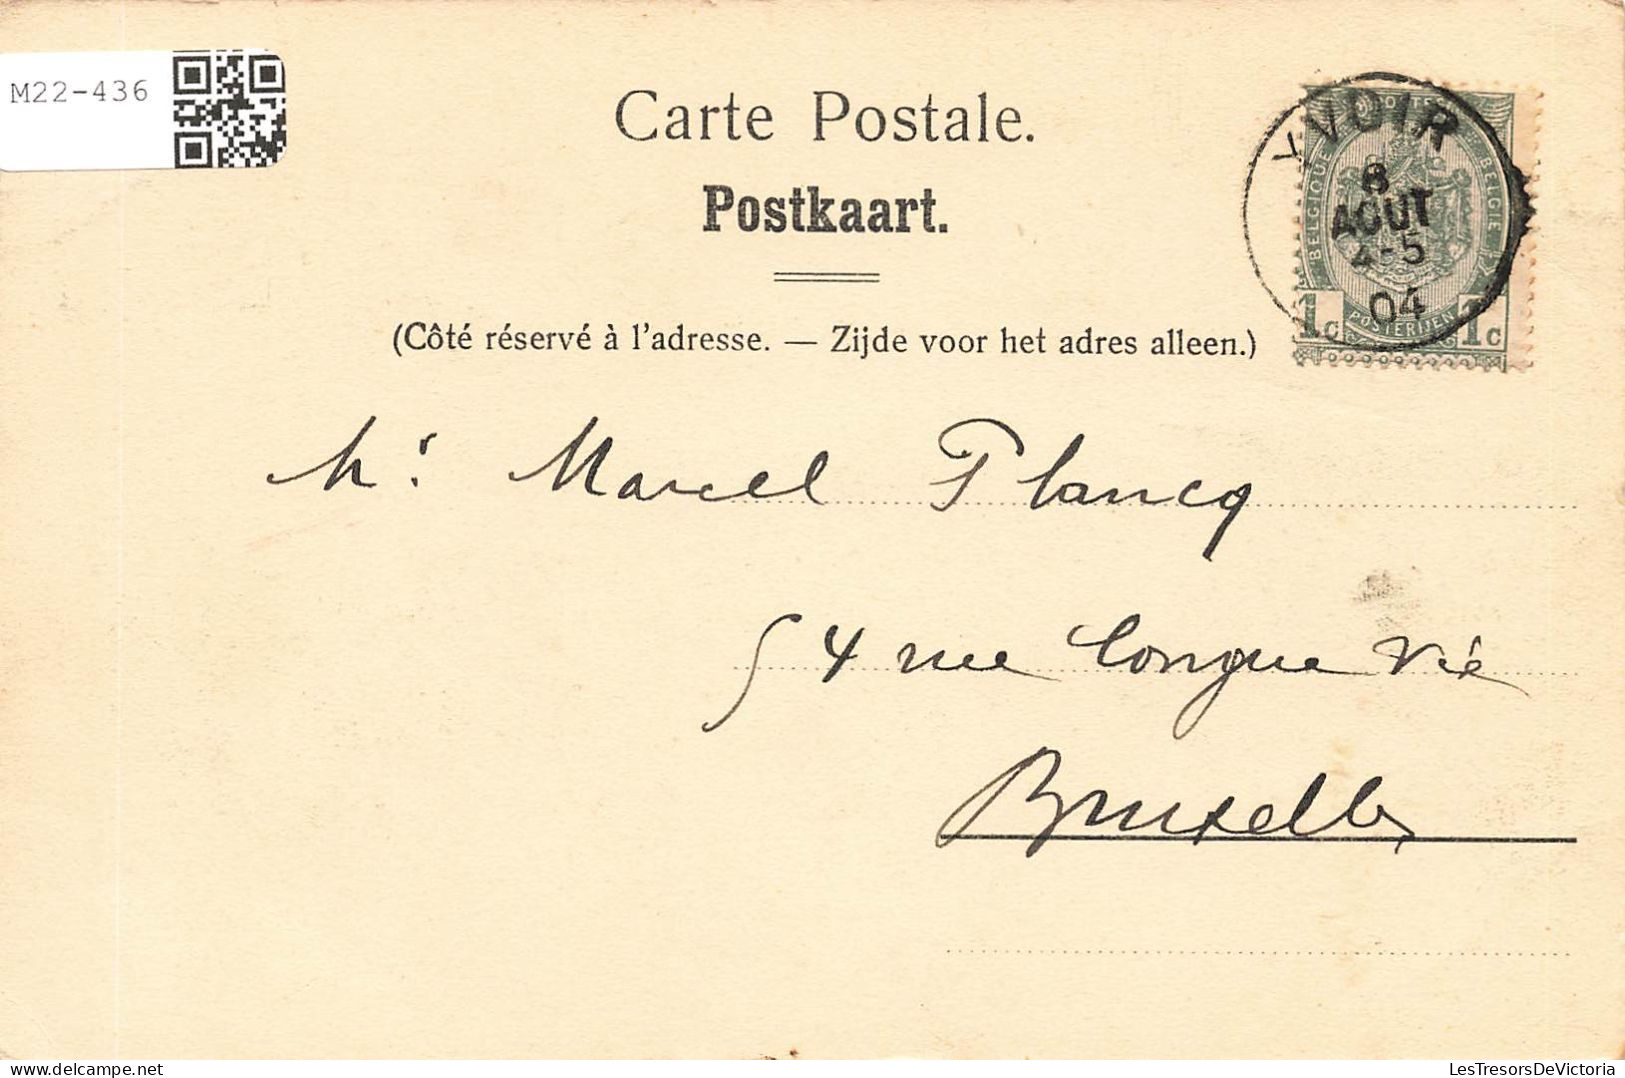 M22-436
Carte Postale.
Postkaart.
YVOIR
8
AOUT
4-5
04
POSTES
BELGIQUE
BELGIË
POSTERIJEN
1c 1c
(Côté réservé à l'adresse. — Zijde voor het adres alleen.)
Mr. Marcel Plancq
54 rue Longue Vie
Bruxelles
LesTresorsDeVictoria